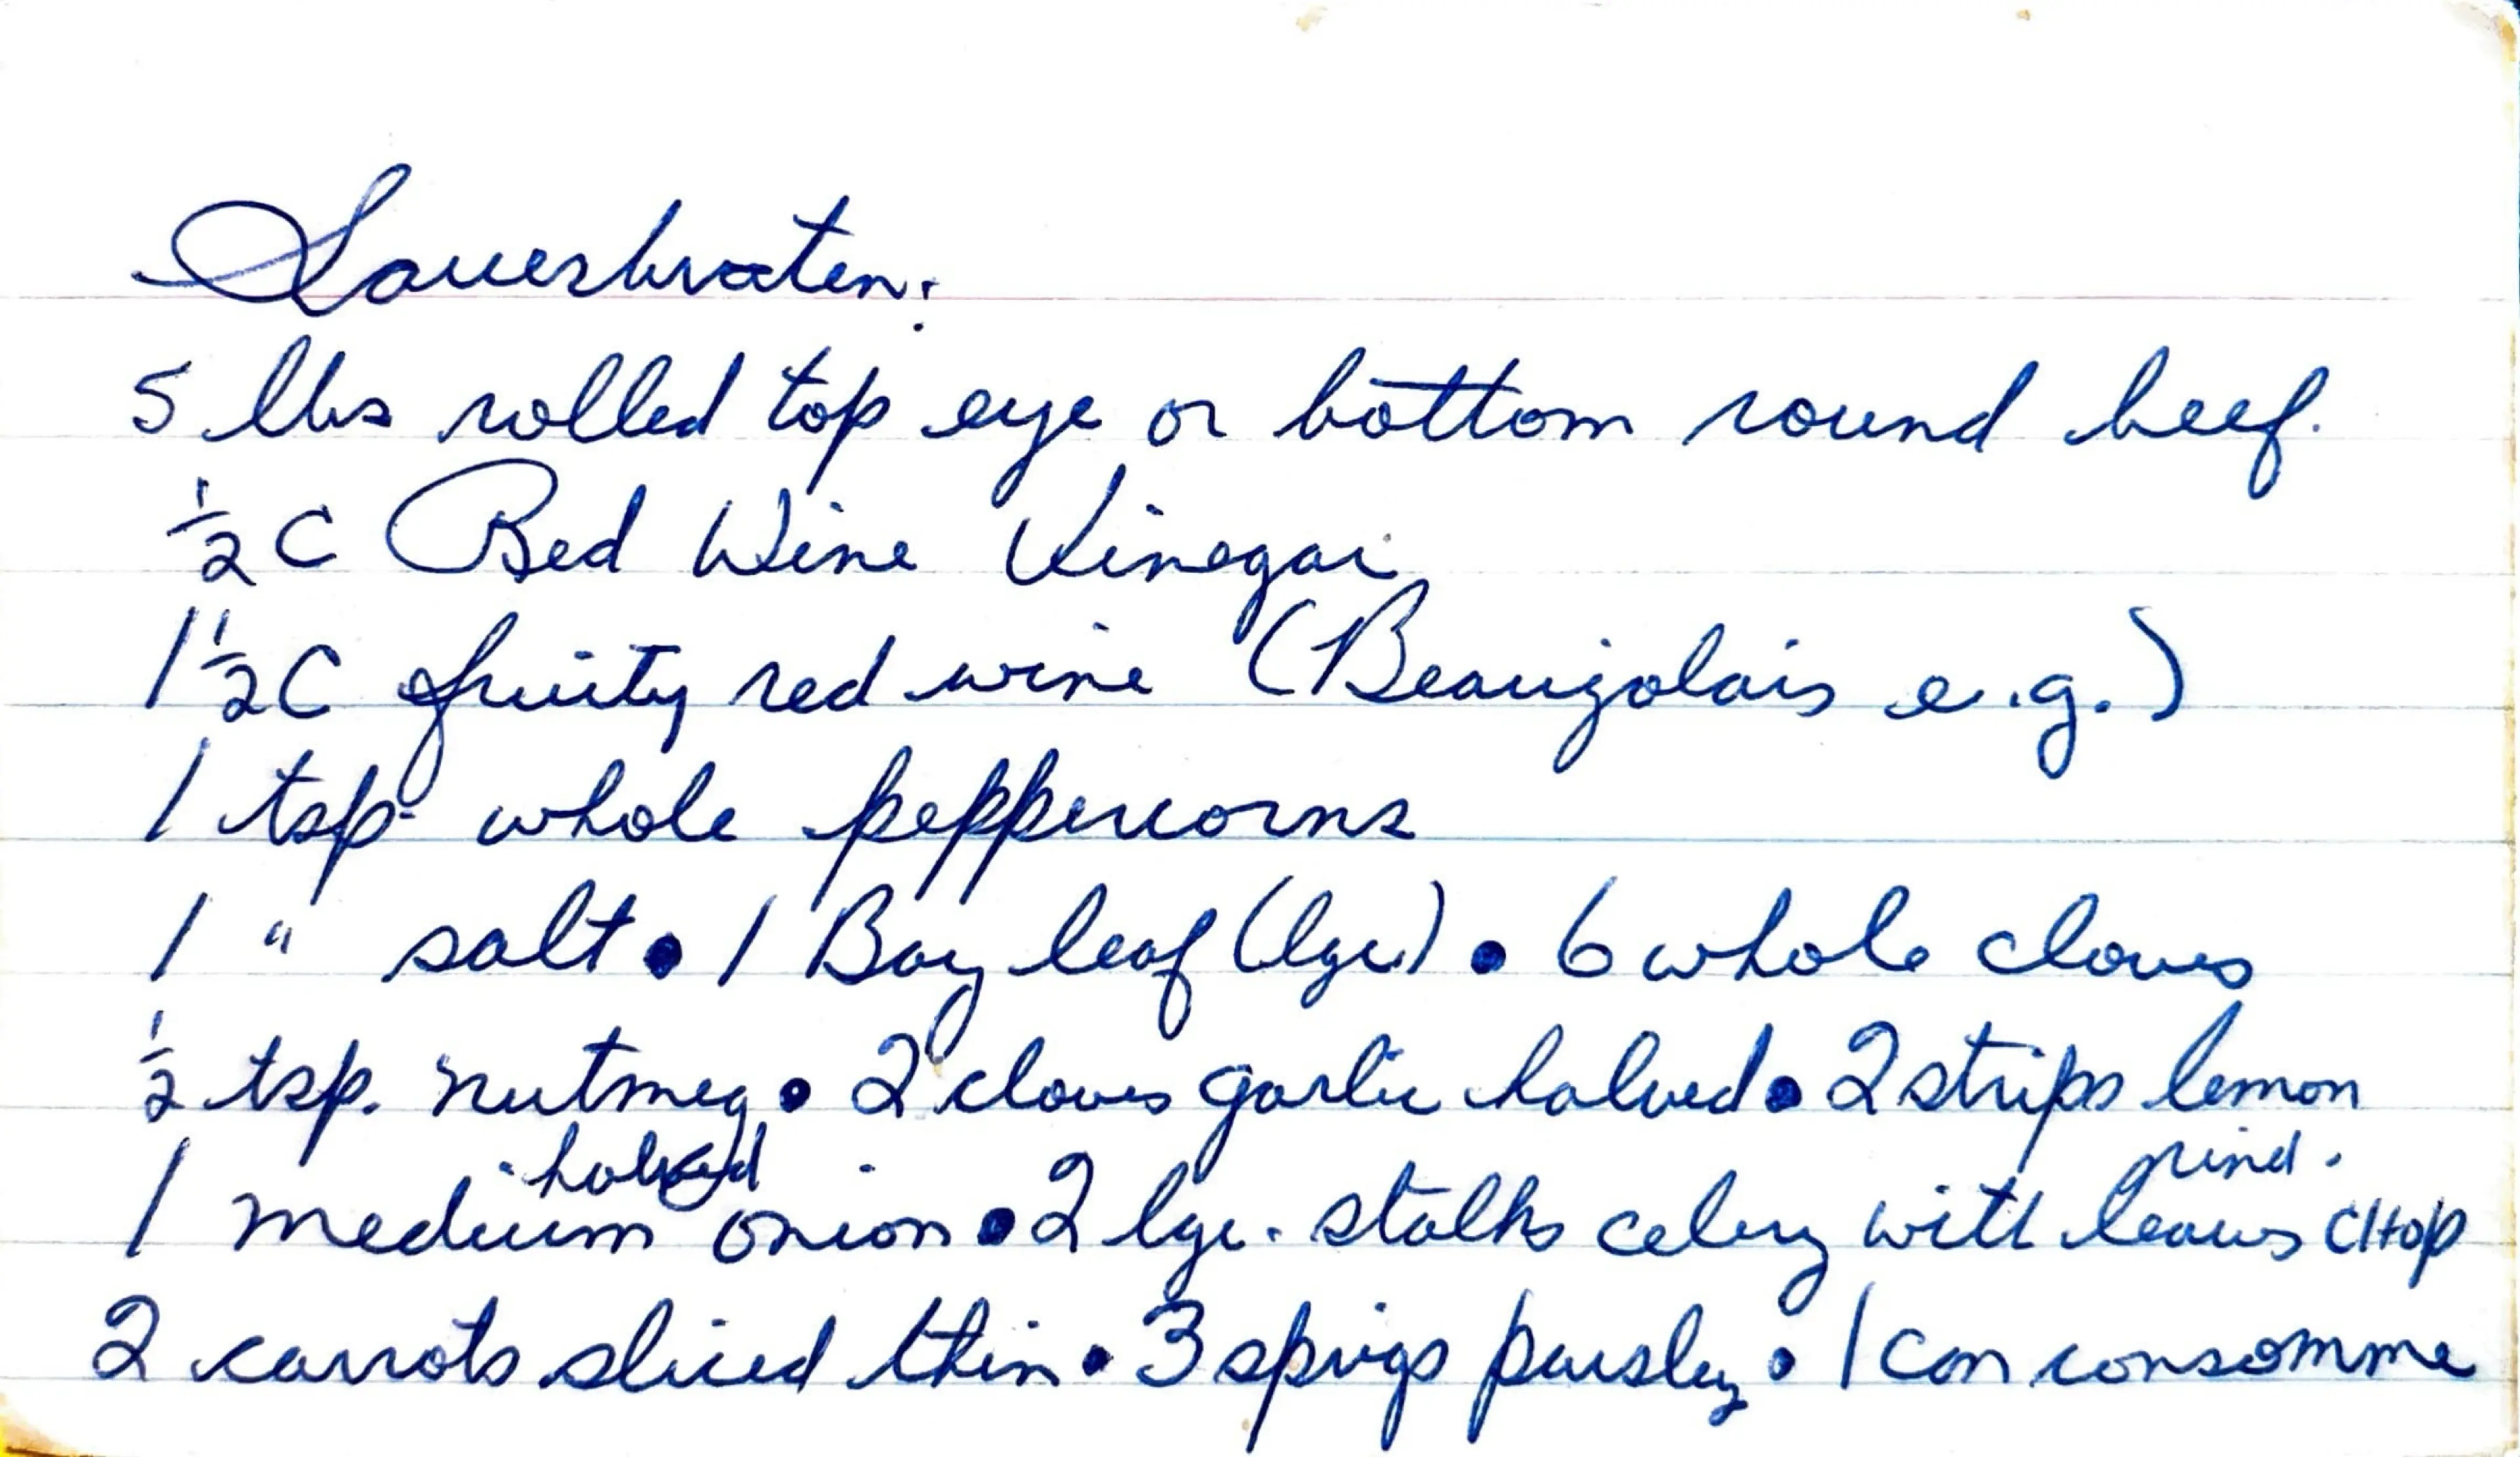 Sauerbraten:
5 lbs rolled top eye or bottom round beef.
½ C Red Wine Vinegar
1½ C fruity red wine (Beaujolais e.g.)
1 tsp. whole peppercorns
1 " salt • 1 Bay leaf (lge) • 6 whole cloves
½ tsp. nutmeg • 2 cloves garlic halved • 2 strips lemon rind.
1 medium halved onion • 2 lge. stalks celery with leaves CHOP
2 carrots sliced thin • 3 sprigs parsley • 1 can consomme